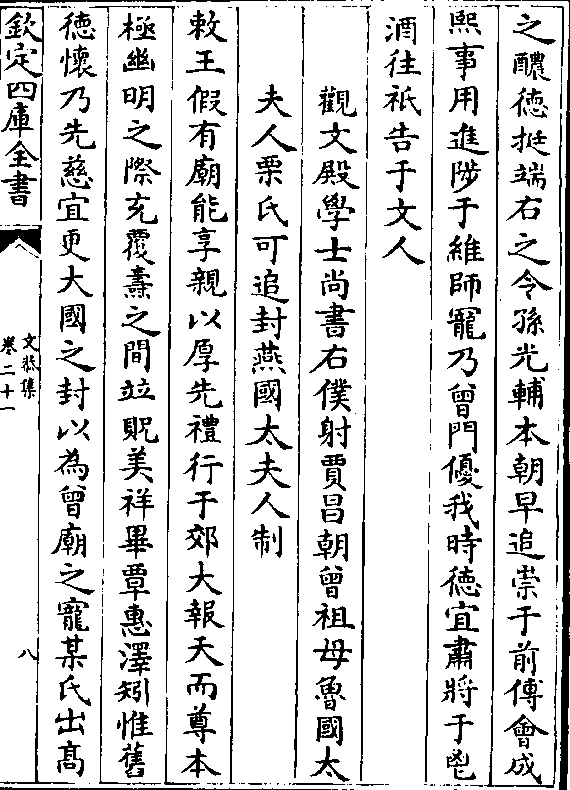 之醲徳挺端右之令孫光輔本朝早追崇于前傅會成
熙事用進陟于維師寵乃曾門優我時徳宜肅將于鬯
酒往祇告于文人
觀文殿學士尚書右僕射賈昌朝曾祖母魯國太
夫人栗氏可追封燕國太夫人制
敕王假有廟能享親以厚先禮行于郊大報天而尊本
極幽明之際充覆燾之間竝貺美祥畢覃惠澤矧惟舊
徳懐乃先慈宜更大國之封以為曾廟之寵某氏出髙
欽定四庫全書
文恭集
卷二十一
八